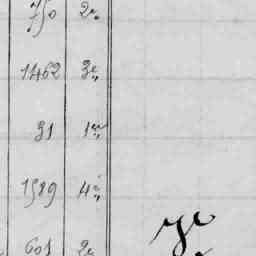 750 2e
1462 3e
31 1er
1989 4e
601 2e